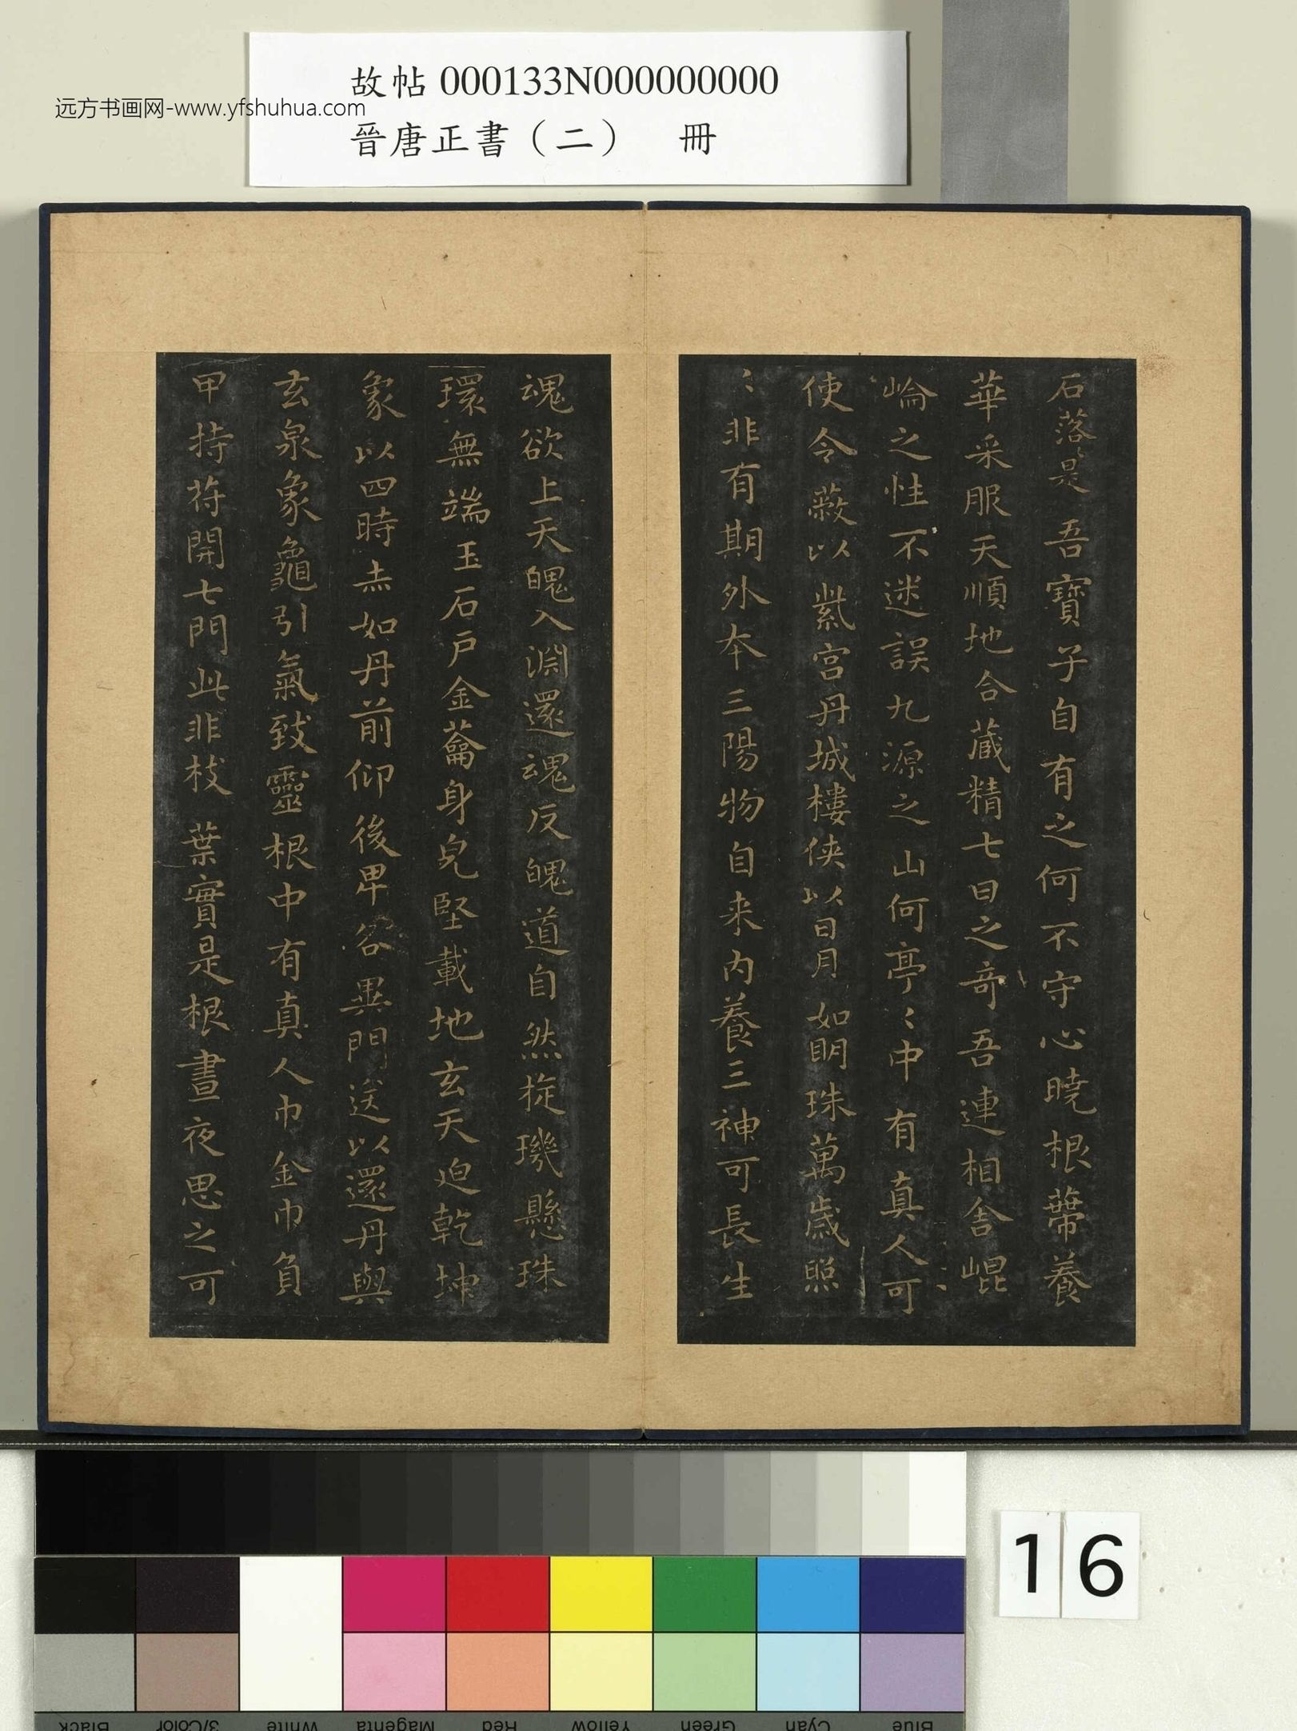 故帖 000133N000000000
远方书画网-www.yfshuhua.com
晉唐正書（二）　冊
石落是吾寶子自有之何不守心曉根蔕養
華采服天順地合藏精七日之竒吾連相舎崐
崘之性不迷誤九源之山何亭〻中有真人可
使令蔽以紫宫丹城樓侠以日月如眀珠萬歳照
〻非有期外夲三陽物自来内養三神可長生
魂欲上天魄入淵還魂反魄道自然㨁璣懸珠
環無端玉石戸金蘥身皃堅載地玄天迫乾坤
象以四時赤如丹前仰後卑各異門送以還丹與
玄泉象龜引氣致靈根中有真人巾金巾負
甲持苻開七門此非枝葉實是根晝夜思之可
16
Black
3/Color
White
Magenta
Red
Yellow
Green
Cyan
Blue